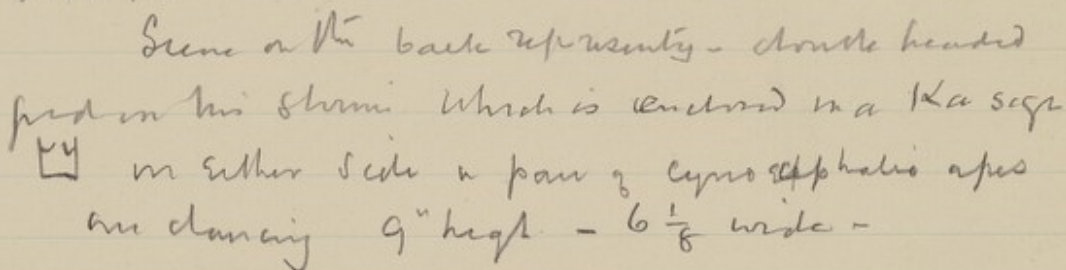 Scene on the back representing - double headed
god in his shrine which is enclosed in a Ka sign
on either side a pair of cynocephalic apes
are dancing 9" high - 6 1/8 wide -